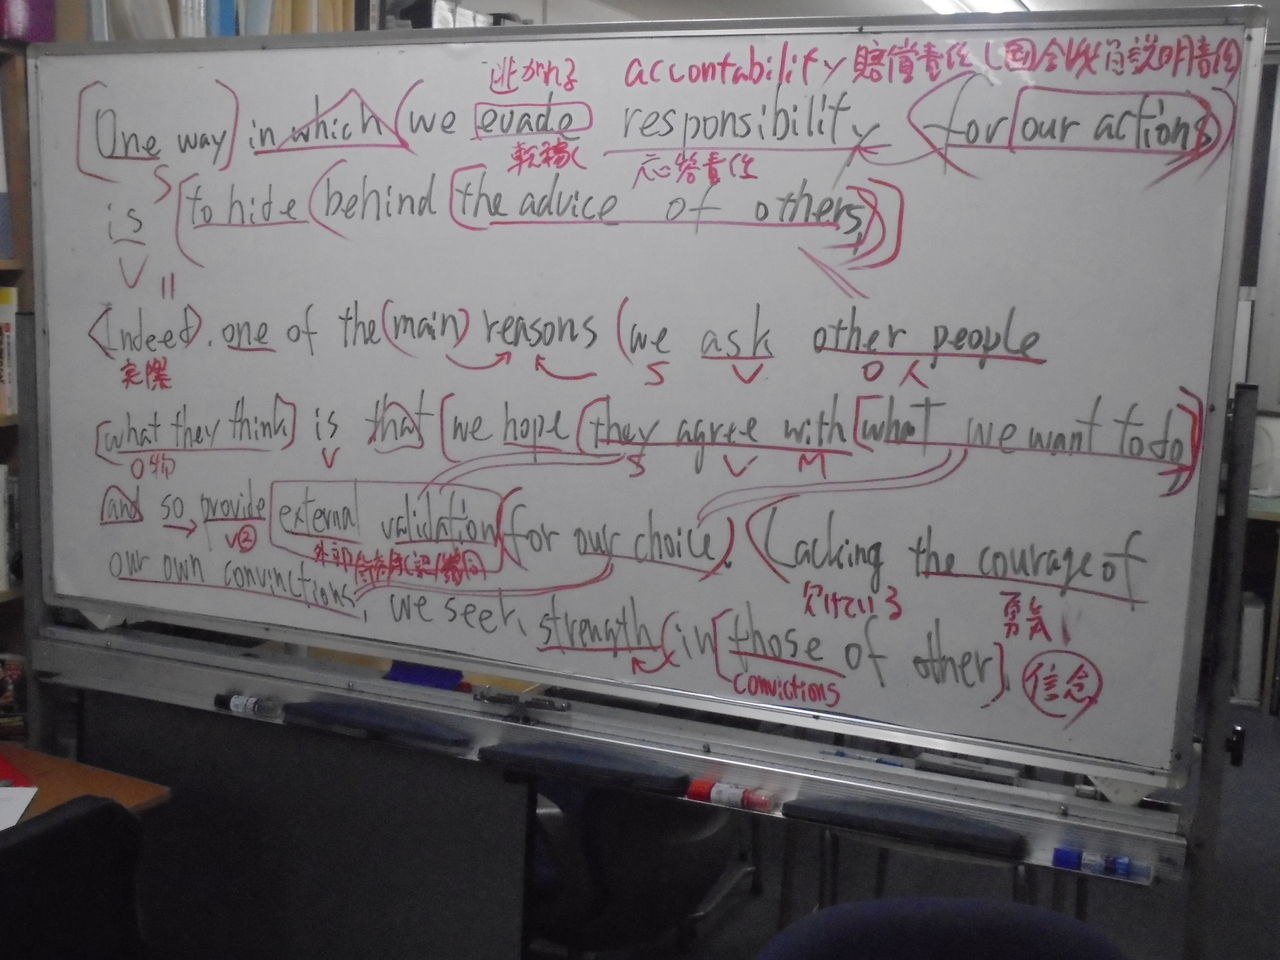 逃がれる accontability 賠償責任
One way in which we evade responsibility for our actions
S 軟 応答責任
is to hide behind the advice of others,
V
Indeed, one of the main reasons we ask other people
実際 S V O 人
what they think is that we hope they agree with what we want to do
O 物 V S V M
and so provide external validation for our choice. Lacking the courage of
V② 外部 欠けている 勇気
our own convinctions, we seek strength in those of other.
convictions 信念